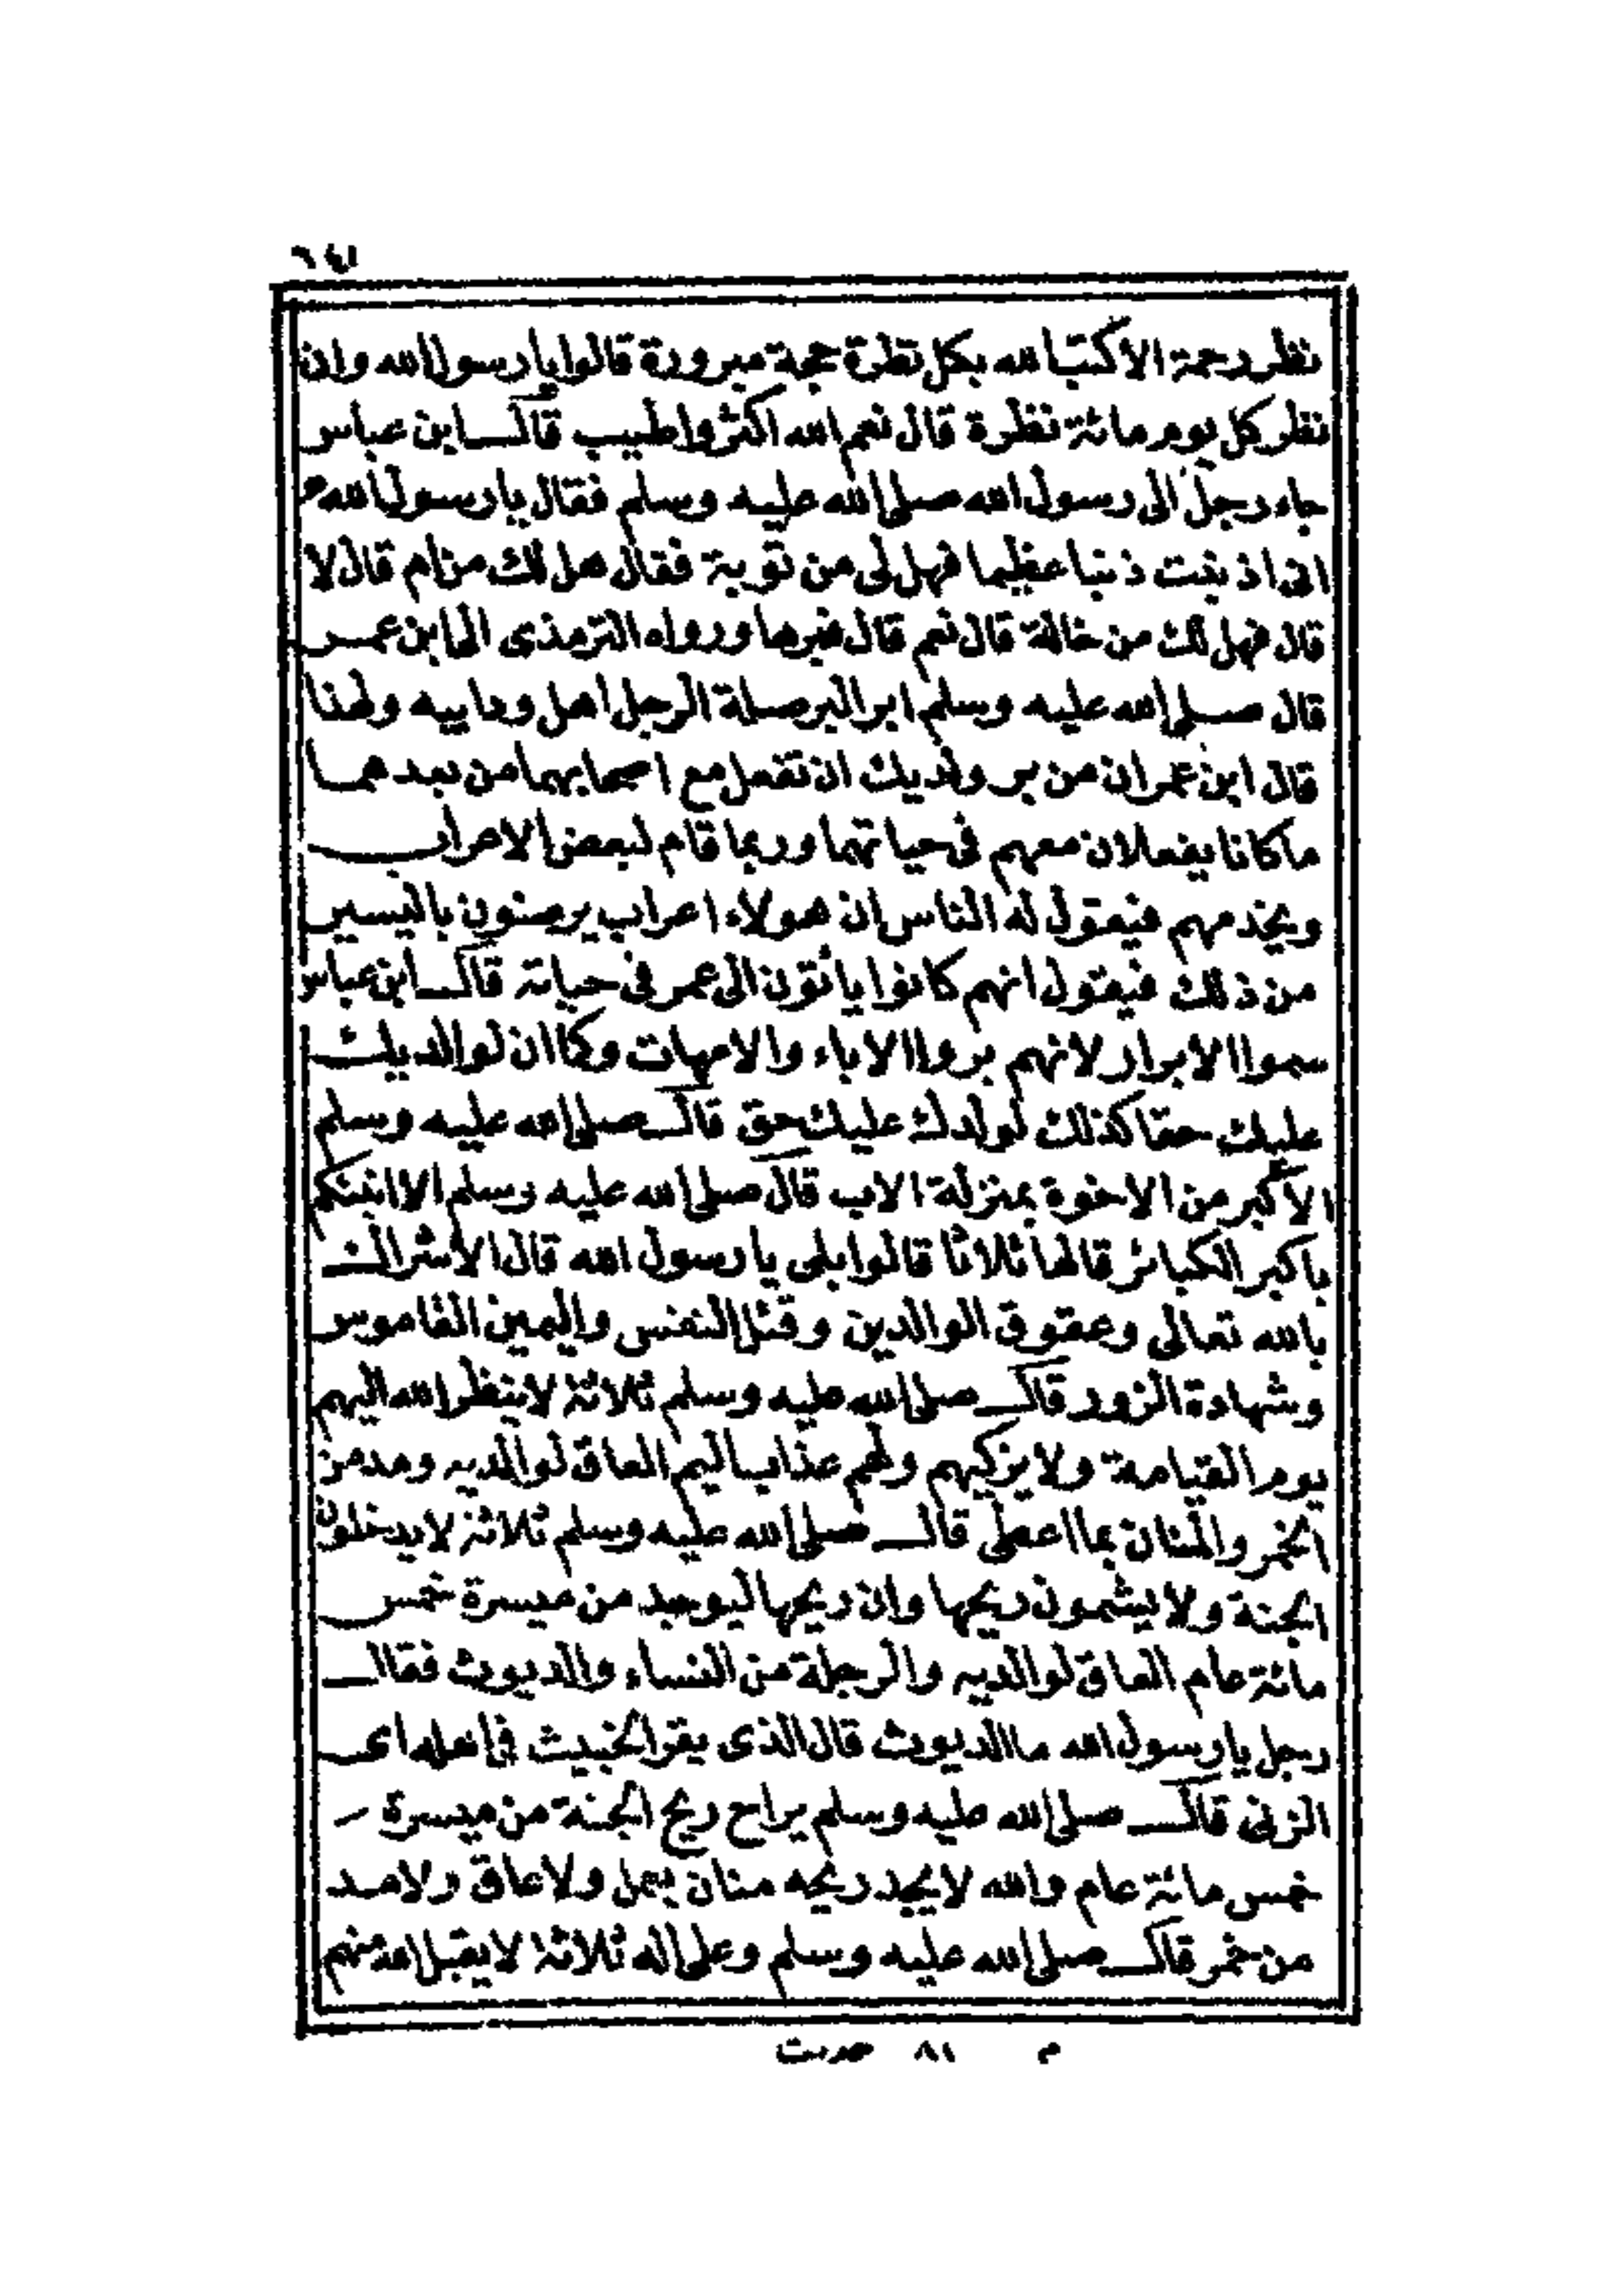 ٦٤١
نظر رحمة الا كتب الله بكل نظرة حجة مبرورة قالوا يا رسول الله وان
نظر كل يوم مائة نظرة قال نعم الله اكثر واطيب قال ابن عباس
جاء رجل الى رسول الله صلى الله عليه وسلم فقال يا رسول الله
انى اذنبت ذنبا عظيما فهل لى من توبة فقال هل لك من ام قال لا
قال فهل لك من خالة قال نعم قال فبرها ورواه الترمذى الى ابن عمر
قال صلى الله عليه وسلم ابر البر صلة الرجل اهل ود ابيه ولهذا
قال ابن عمر ان من بر ولديك ان تفعل مع اصحابهما من بعدهما
ما كانا يفعلان معهم فى حياتهما وربما قام لبعض الاعراب
ويخدمهم فيقول له الناس ان هولاء اعراب يرضون باليسير
من ذلك فيقول انهم كانوا ياتون الى عمر فى حياته قال ابن عباس
سموا الابرار لانهم بروا الاباء والامهات وكما ان لوالديك
عليك حقا كذلك لولدك عليك حق قال صلى الله عليه وسلم
الأكبر من الاخوة بمنزلة الاب قال صلى الله عليه وسلم الا انبئكم
باكبر الكبائر قالها ثلاثا قالوا بلى يا رسول الله قال الاشراك
بالله تعالى وعقوق الوالدين وقتل النفس واليمين الغاموس
وشهادة الزور قال صلى الله عليه وسلم ثلاثة لا ينظر الله اليهم
يوم القيامة ولا يزكيهم ولهم عذاب اليم العاق لوالديه ومدمن
الخمر والمنان بما اعطى قال صلى الله عليه وسلم ثلاثة لا يدخلون
الجنة ولا يشمون ريحها وان ريحها ليوجد من ميسرة خمس
مائة عام العاق لوالديه والرجلة من النساء والديوث فقال
رجل يا رسول الله ما الديوث قال الذى يقر الخبيث فى اهله اى
الزنى قال صلى الله عليه وسلم يراح ريح الجنة من ميسرة
خمس مائة عام والله لا يجد ريحه منان بعمل ولا عاق ولا مد
من خمر قال صلى الله عليه وسلم وعلى اله ثلاثة لا يقبل الله منهم
م ٨١